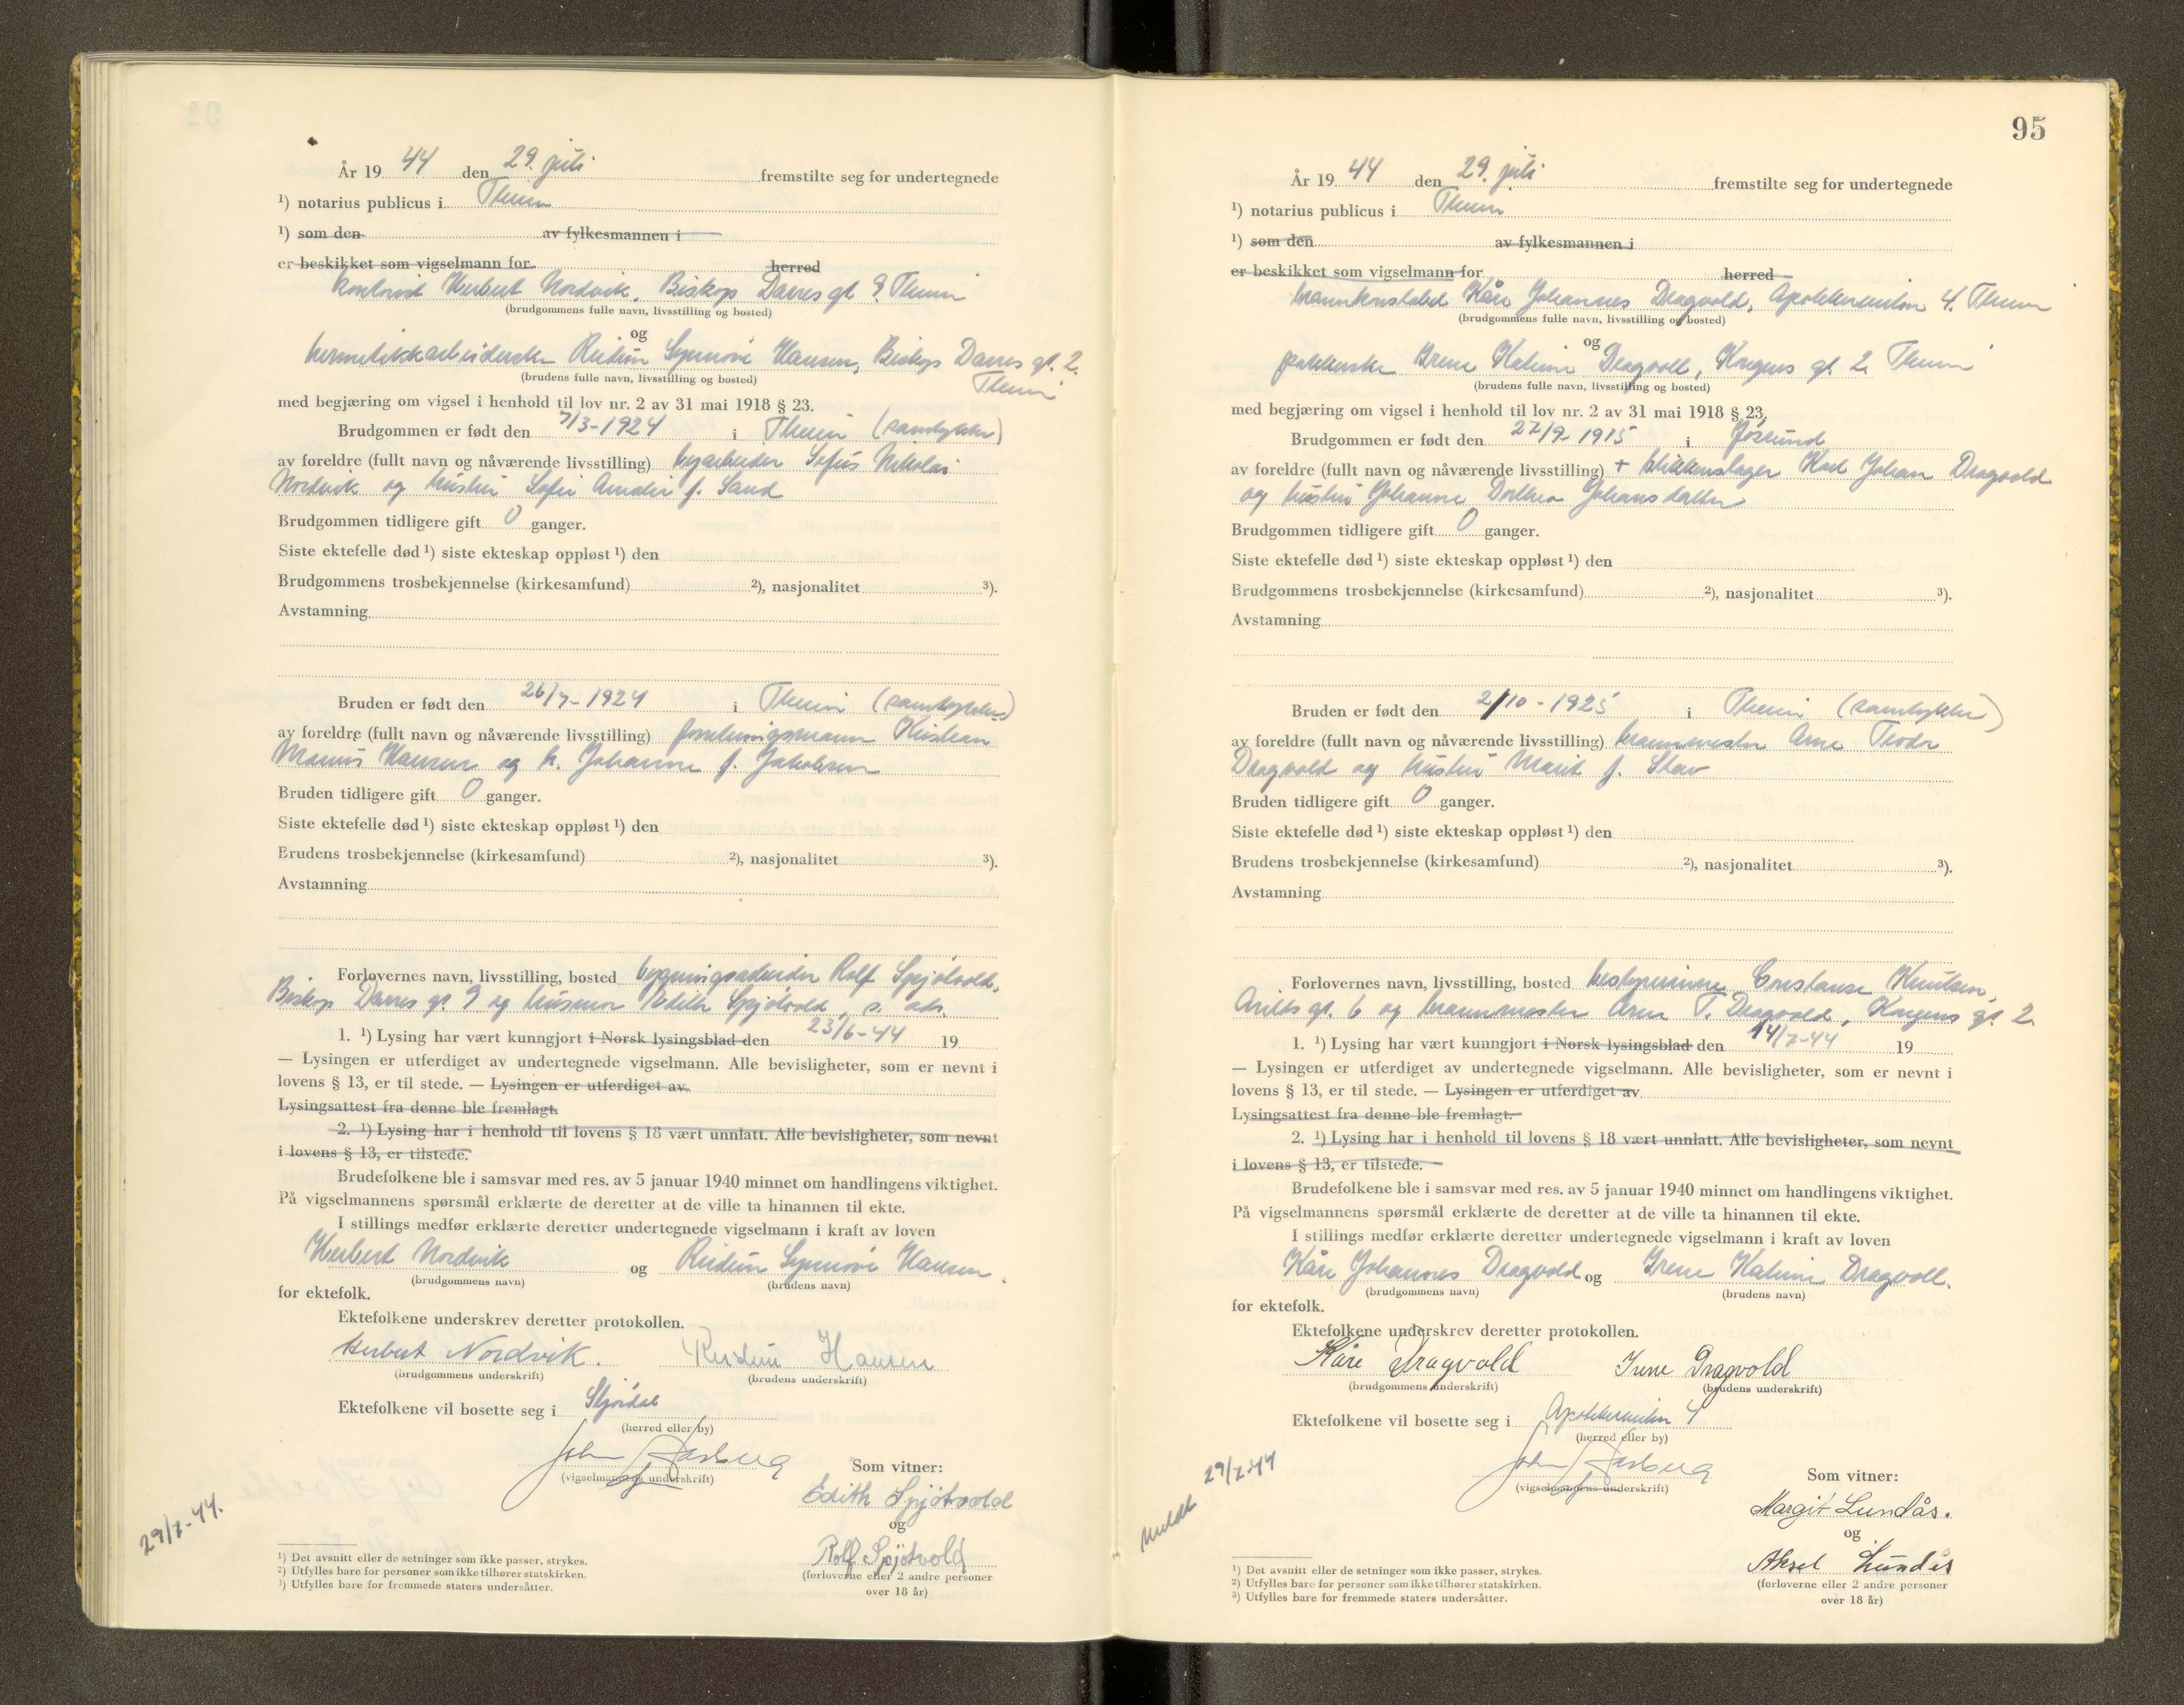 År 19 44 den 29. juli fremstilte seg for undertegnede
¹) notarius publicus i Theim
¹) som den av fylkesmannen i
er beskikket som vigselmann for herred
kontorist Herbert Nordvik, Biskop Darres gt 9. Theim
(brudgommens fulle navn, livsstilling og bosted)
og
hermetikkarbeiderske Reidun Synnøve Hansen, Biskop Darres gt. 2.
Theim
(brudens fulle navn, livsstilling og bosted)
med begjæring om vigsel i henhold til lov nr. 2 av 31 mai 1918 § 23.
Brudgommen er født den 7/3-1924 i Theim (samtykke)
av foreldre (fullt navn og nåværende livsstilling) byarbeider Sofus Nikolai
Nordvik og hustru Sofie Amalie f. Sand
Brudgommen tidligere gift 0 ganger.
Siste ektefelle død ¹) siste ekteskap oppløst ¹) den
Brudgommens trosbekjennelse (kirkesamfund) ²), nasjonalitet ³).
Avstamning
Bruden er født den 26/7-1924 i Theim (samtykke)
av foreldre (fullt navn og nåværende livsstilling) forretningsmann Kristian
Hansen og h. Johanne f. Jakobsen
Bruden tidligere gift 0 ganger.
Siste ektefelle død ¹) siste ekteskap oppløst ¹) den
Brudens trosbekjennelse (kirkesamfund) ²), nasjonalitet ³).
Avstamning
Forlovernes navn, livsstilling, bosted bygningsarbeider Rolf Spjøtvold,
Biskop Darres gt. 9 og husmor Edith Spjøtvold, s. adr.
1. ¹) Lysing har vært kunngjort i Norsk lysingsblad den 23/6-44 19
— Lysingen er utferdiget av undertegnede vigselmann. Alle bevisligheter, som er nevnt i
lovens § 13, er til stede. — Lysingen er utferdiget av
Lysingsattest fra denne ble fremlagt.
2. ¹) Lysing har i henhold til lovens § 18 vært unnlatt. Alle bevisligheter, som nevnt
i lovens § 13, er tilstede.
Brudefolkene ble i samsvar med res. av 5 januar 1940 minnet om handlingens viktighet.
På vigselmannens spørsmål erklærte de deretter at de ville ta hinannen til ekte.
I stillings medfør erklærte deretter undertegnede vigselmann i kraft av loven
Herbert Nordvik og Reidun Synnøve Hansen.
(brudgommens navn) (brudens navn)
for ektefolk.
Ektefolkene underskrev deretter protokollen.
Herbert Nordvik. Reidun Hansen
(brudgommens underskrift) (brudens underskrift)
Ektefolkene vil bosette seg i Stjørdal
(herred eller by)
John Aasberg
(vigselmannens underskrift)
Som vitner:
Edith Spjøtvold
og
Rolf Spjøtvold
(forloverne eller 2 andre personer
over 18 år)
29/7-44.
¹) Det avsnitt eller de setninger som ikke passer, strykes.
²) Utfylles bare for personer som ikke tilhører statskirken.
³) Utfylles bare for fremmede staters undersåtter.
95
År 19 44 den 29. juli fremstilte seg for undertegnede
¹) notarius publicus i Theim
¹) som den av fylkesmannen i
er beskikket som vigselmann for herred
brannkonstabel Kåre Johannes Dragvold, Apotekerveiten 4. Theim
(brudgommens fulle navn, livsstilling og bosted)
og
pakkerske Irene Katrine Dragvoll, Kongens gt. 2. Theim
(brudens fulle navn, livsstilling og bosted)
med begjæring om vigsel i henhold til lov nr. 2 av 31 mai 1918 § 23.
Brudgommen er født den 27/9 1915 i Jøssund
av foreldre (fullt navn og nåværende livsstilling) + blikkenslager Karl Johan Dragvold
og hustru Johanne Dorthea Johansdatter
Brudgommen tidligere gift 0 ganger.
Siste ektefelle død ¹) siste ekteskap oppløst ¹) den
Brudgommens trosbekjennelse (kirkesamfund) ²), nasjonalitet ³).
Avstamning
Bruden er født den 2/10-1925 i Theim (samtykke)
av foreldre (fullt navn og nåværende livsstilling) brannmester Arne Teodor
Dragvold og hustru Marit f. Stav
Bruden tidligere gift 0 ganger.
Siste ektefelle død ¹) siste ekteskap oppløst ¹) den
Brudens trosbekjennelse (kirkesamfund) ²), nasjonalitet ³).
Avstamning
Forlovernes navn, livsstilling, bosted bestyrerinne Constanse Knutsen,
Arilds gt. 6 og brannmester Arne T. Dragvold, Kongens gt. 2.
1. ¹) Lysing har vært kunngjort i Norsk lysingsblad den 14/7-44 19
— Lysingen er utferdiget av undertegnede vigselmann. Alle bevisligheter, som er nevnt i
lovens § 13, er til stede. — Lysingen er utferdiget av
Lysingsattest fra denne ble fremlagt.
2. ¹) Lysing har i henhold til lovens § 18 vært unnlatt. Alle bevisligheter, som nevnt
i lovens § 13, er tilstede.
Brudefolkene ble i samsvar med res. av 5 januar 1940 minnet om handlingens viktighet.
På vigselmannens spørsmål erklærte de deretter at de ville ta hinannen til ekte.
I stillings medfør erklærte deretter undertegnede vigselmann i kraft av loven
Kåre Johannes Dragvold og Irene Katrine Dragvoll.
(brudgommens navn) (brudens navn)
for ektefolk.
Ektefolkene underskrev deretter protokollen.
Kåre Dragvold Irene Dragvold
(brudgommens underskrift) (brudens underskrift)
Ektefolkene vil bosette seg i Apotekerveiten 4
(herred eller by)
John Aasberg
(vigselmannens underskrift)
Som vitner:
Margit Lundås.
og
Aksel Lundås
(forloverne eller 2 andre personer
over 18 år)
Meldt 29/7-44
¹) Det avsnitt eller de setninger som ikke passer, strykes.
²) Utfylles bare for personer som ikke tilhører statskirken.
³) Utfylles bare for fremmede staters undersåtter.